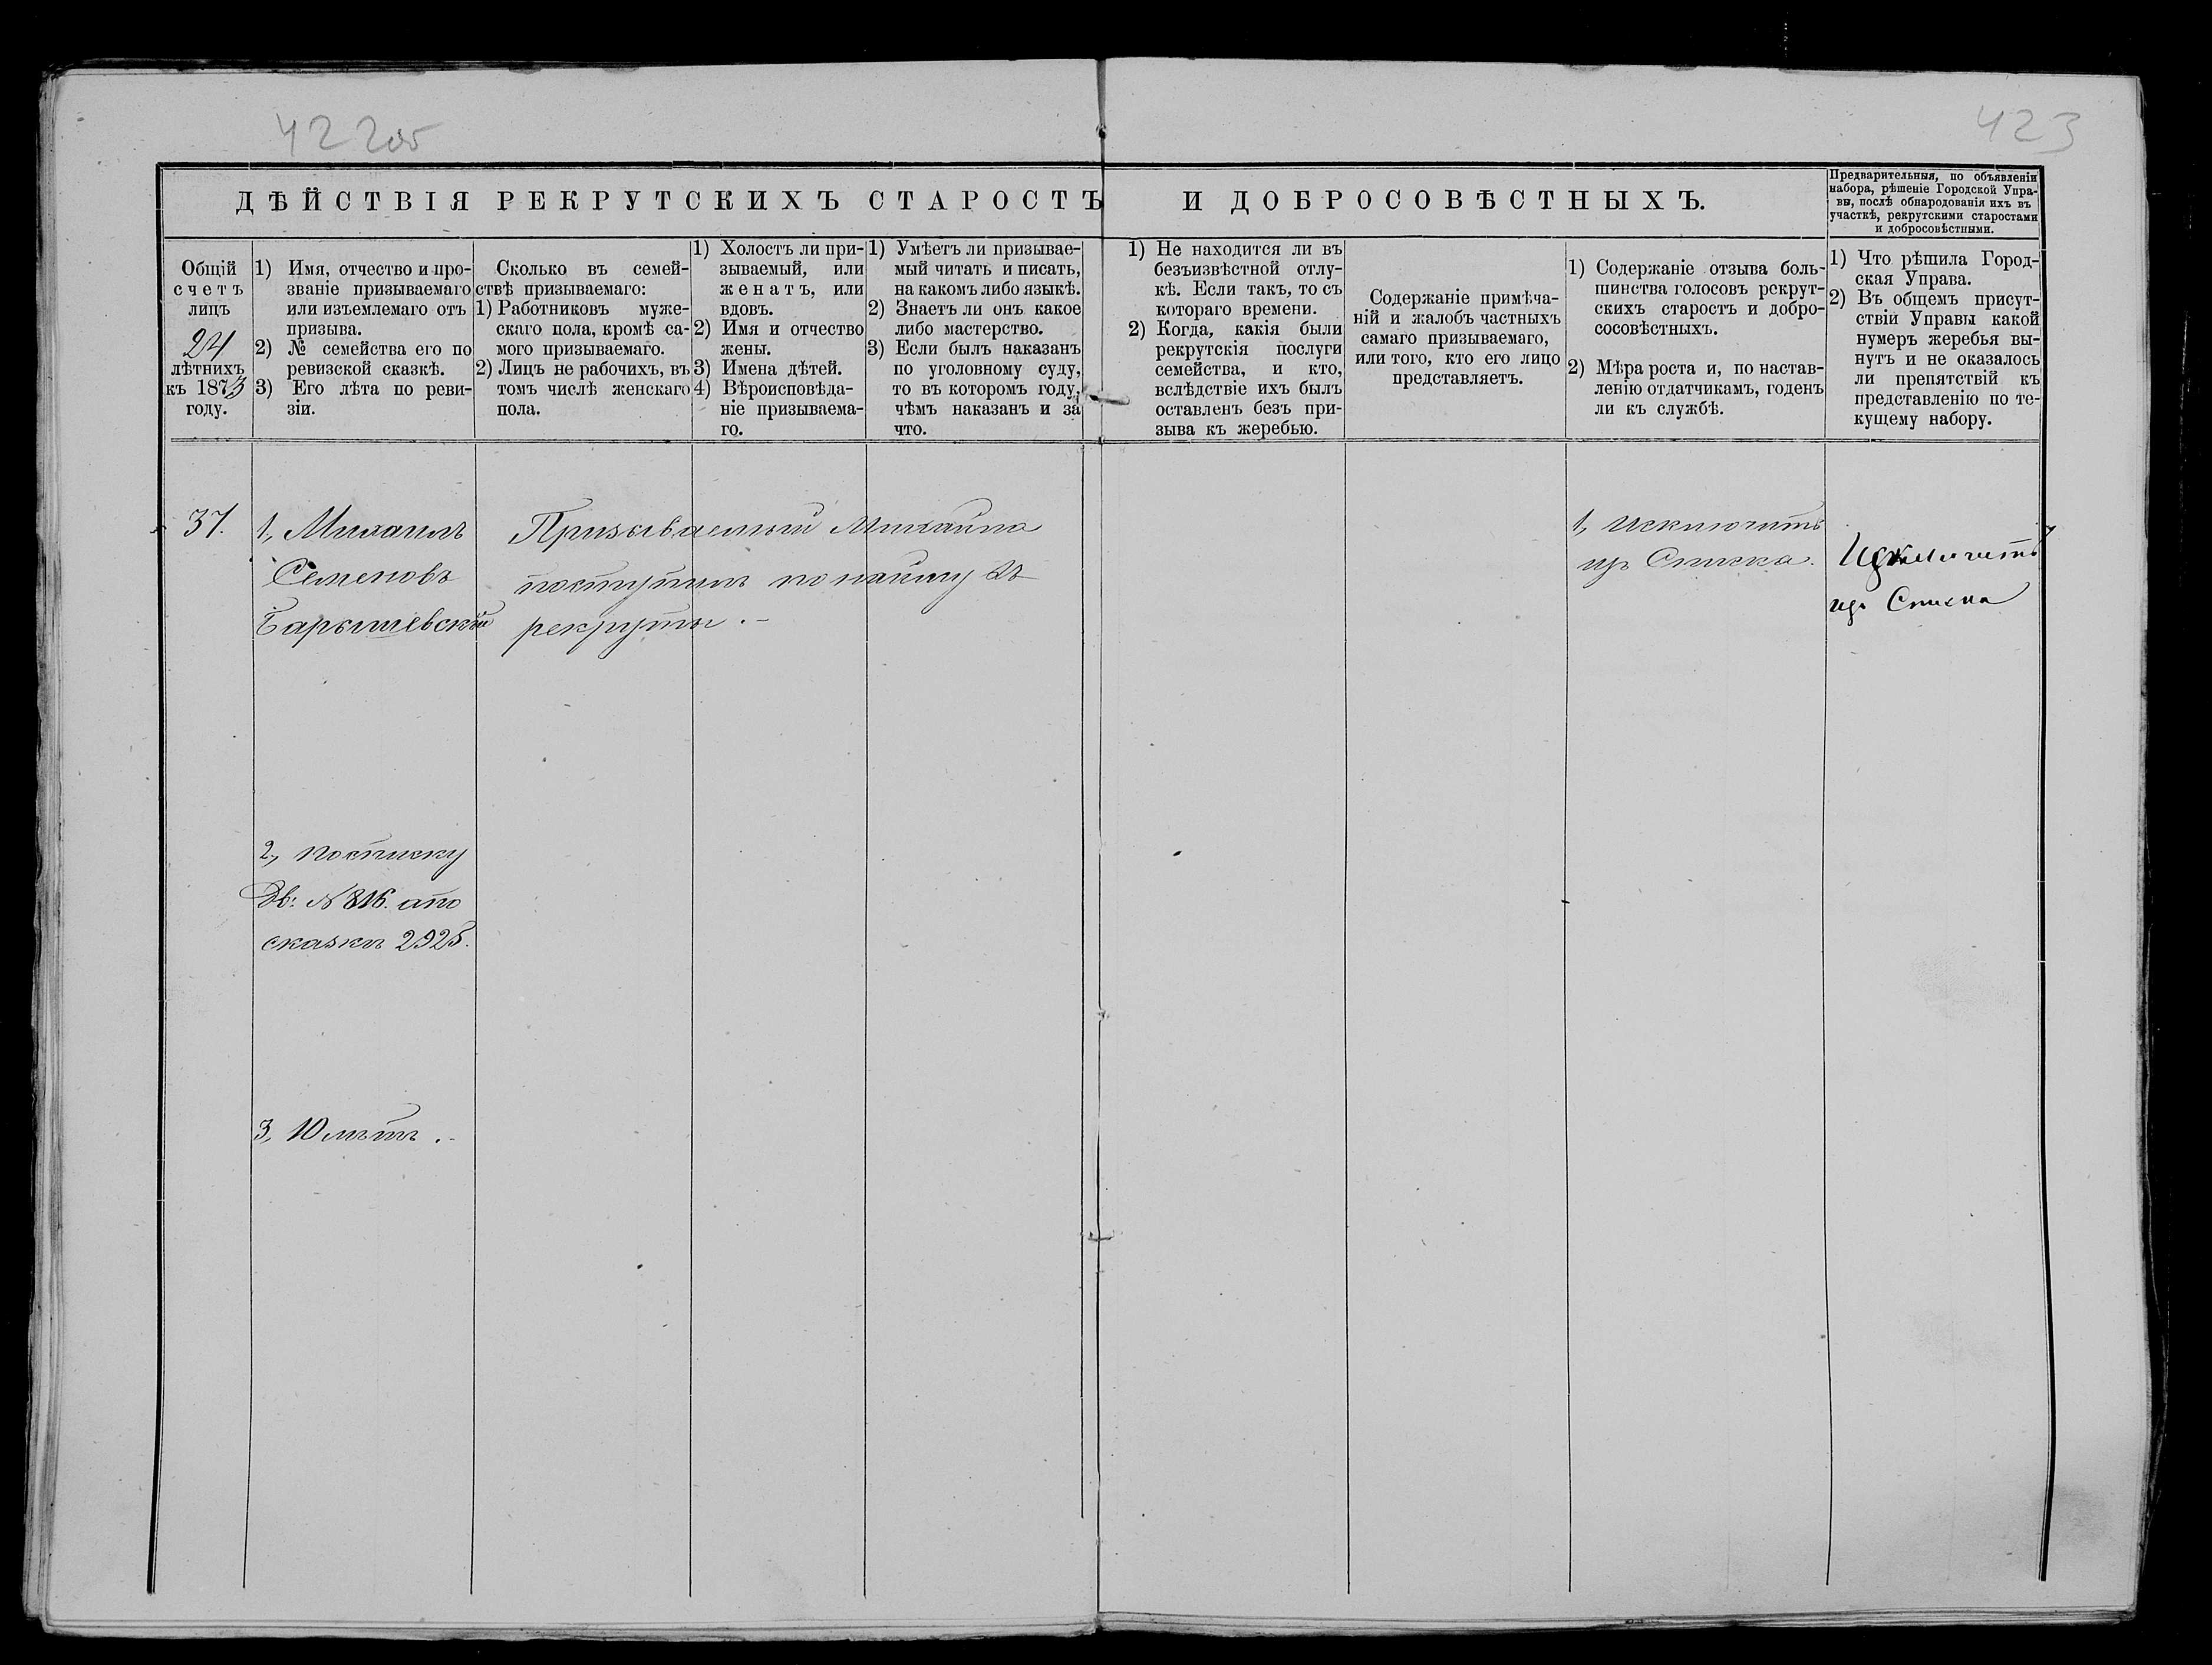 422об
423
ДѢЙСТВІЯ РЕКРУТСКИХЪ СТАРОСТЪ И ДОБРОСОВѢСТНЫХЪ.
Предварительныя, по объявленіи
набора, рѣшеніе Городской Упра-
вы, послѣ обнародованія ихъ въ
участкѣ, рекрутскими старостами
и добросовѣстными.
Общій
счетъ
лицъ
24
лѣтнихъ
къ 1873
году.
1) Имя, отчество и про-
званіе призываемаго
или изъемлемаго отъ
призыва.
2) № семейства его по
ревизской сказкѣ.
3) Его лѣта по реви-
зіи.
Сколько въ семей-
ствѣ призываемаго:
1) Работниковъ муже-
скаго пола, кромѣ са-
мого призываемаго.
2) Лицъ не рабочихъ, въ
томъ числѣ женскаго
пола.
1) Холостъ ли при-
зываемый, или
женатъ, или
вдовъ.
2) Имя и отчество
жены.
3) Имена дѣтей.
4) Вѣроисповѣда-
ніе призываема-
го.
1) Умѣетъ ли призывае-
мый читать и писать,
на какомъ либо языкѣ.
2) Знаетъ ли онъ какое
либо мастерство.
3) Если былъ наказанъ
по уголовному суду,
то въ которомъ году,
чѣмъ наказанъ и за
что.
1) Не находится ли въ
безъизвѣстной отлу-
кѣ. Если такъ, то съ
котораго времени.
2) Когда, какія были
рекрутскія послуги
семейства, и кто,
вслѣдствіе ихъ былъ
оставленъ безъ при-
зыва къ жеребью.
Содержаніе примѣча-
ній и жалобъ частныхъ
самаго призываемаго,
или того, кто его лицо
представляетъ.
1) Содержаніе отзыва боль-
шинства голосовъ рекрут-
скихъ старостъ и добро-
сосовѣстныхъ.
2) Мѣра роста и, по настав-
ленію отдатчикамъ, годенъ
ли къ службѣ.
1) Что рѣшила Город-
ская Управа.
2) Въ общемъ присут-
ствіи Управы какой
нумеръ жеребья вы-
нутъ и не оказалось
ли препятствій къ
представленію по те-
кущему набору.
37.
1, Михаилъ
Семеновъ
Барышевскій
2, по списку
Дв: № 816. а по
сказкѣ 2925.
3, 10 лѣтъ.
Призываемый Михаила
поступилъ по найму въ
рекруты.
1, Исключить
изъ Списка.
Исключить
изъ Списка